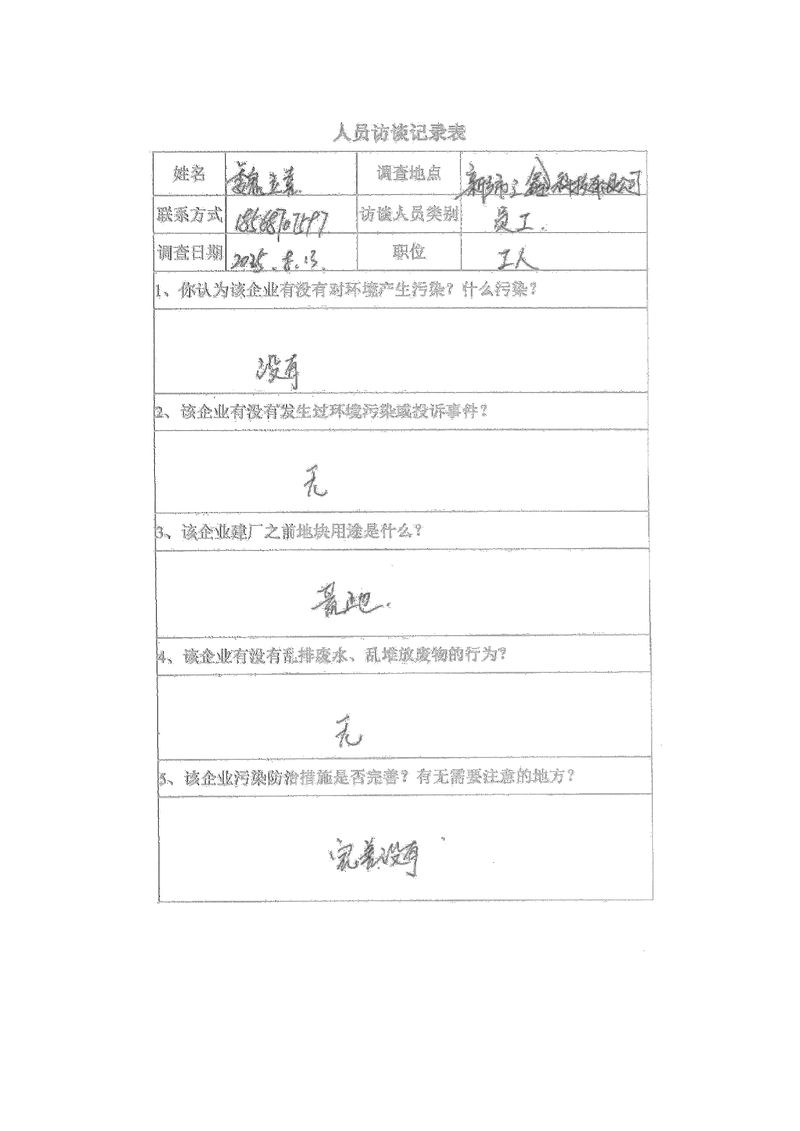 人员访谈记录表
姓名 魏 调查地点 新 市 鑫科技有限公司
联系方式 访谈人员类别 员工.
调查日期 2025.8.13 职位 工人
1、你认为该企业有没有对环境产生污染？什么污染？
没有
2、该企业有没有发生过环境污染或投诉事件？
无
3、该企业建厂之前地块用途是什么？
荒地.
4、该企业有没有乱排废水、乱堆放废物的行为？
无
5、该企业污染防治措施是否完善？有无需要注意的地方？
完善没有